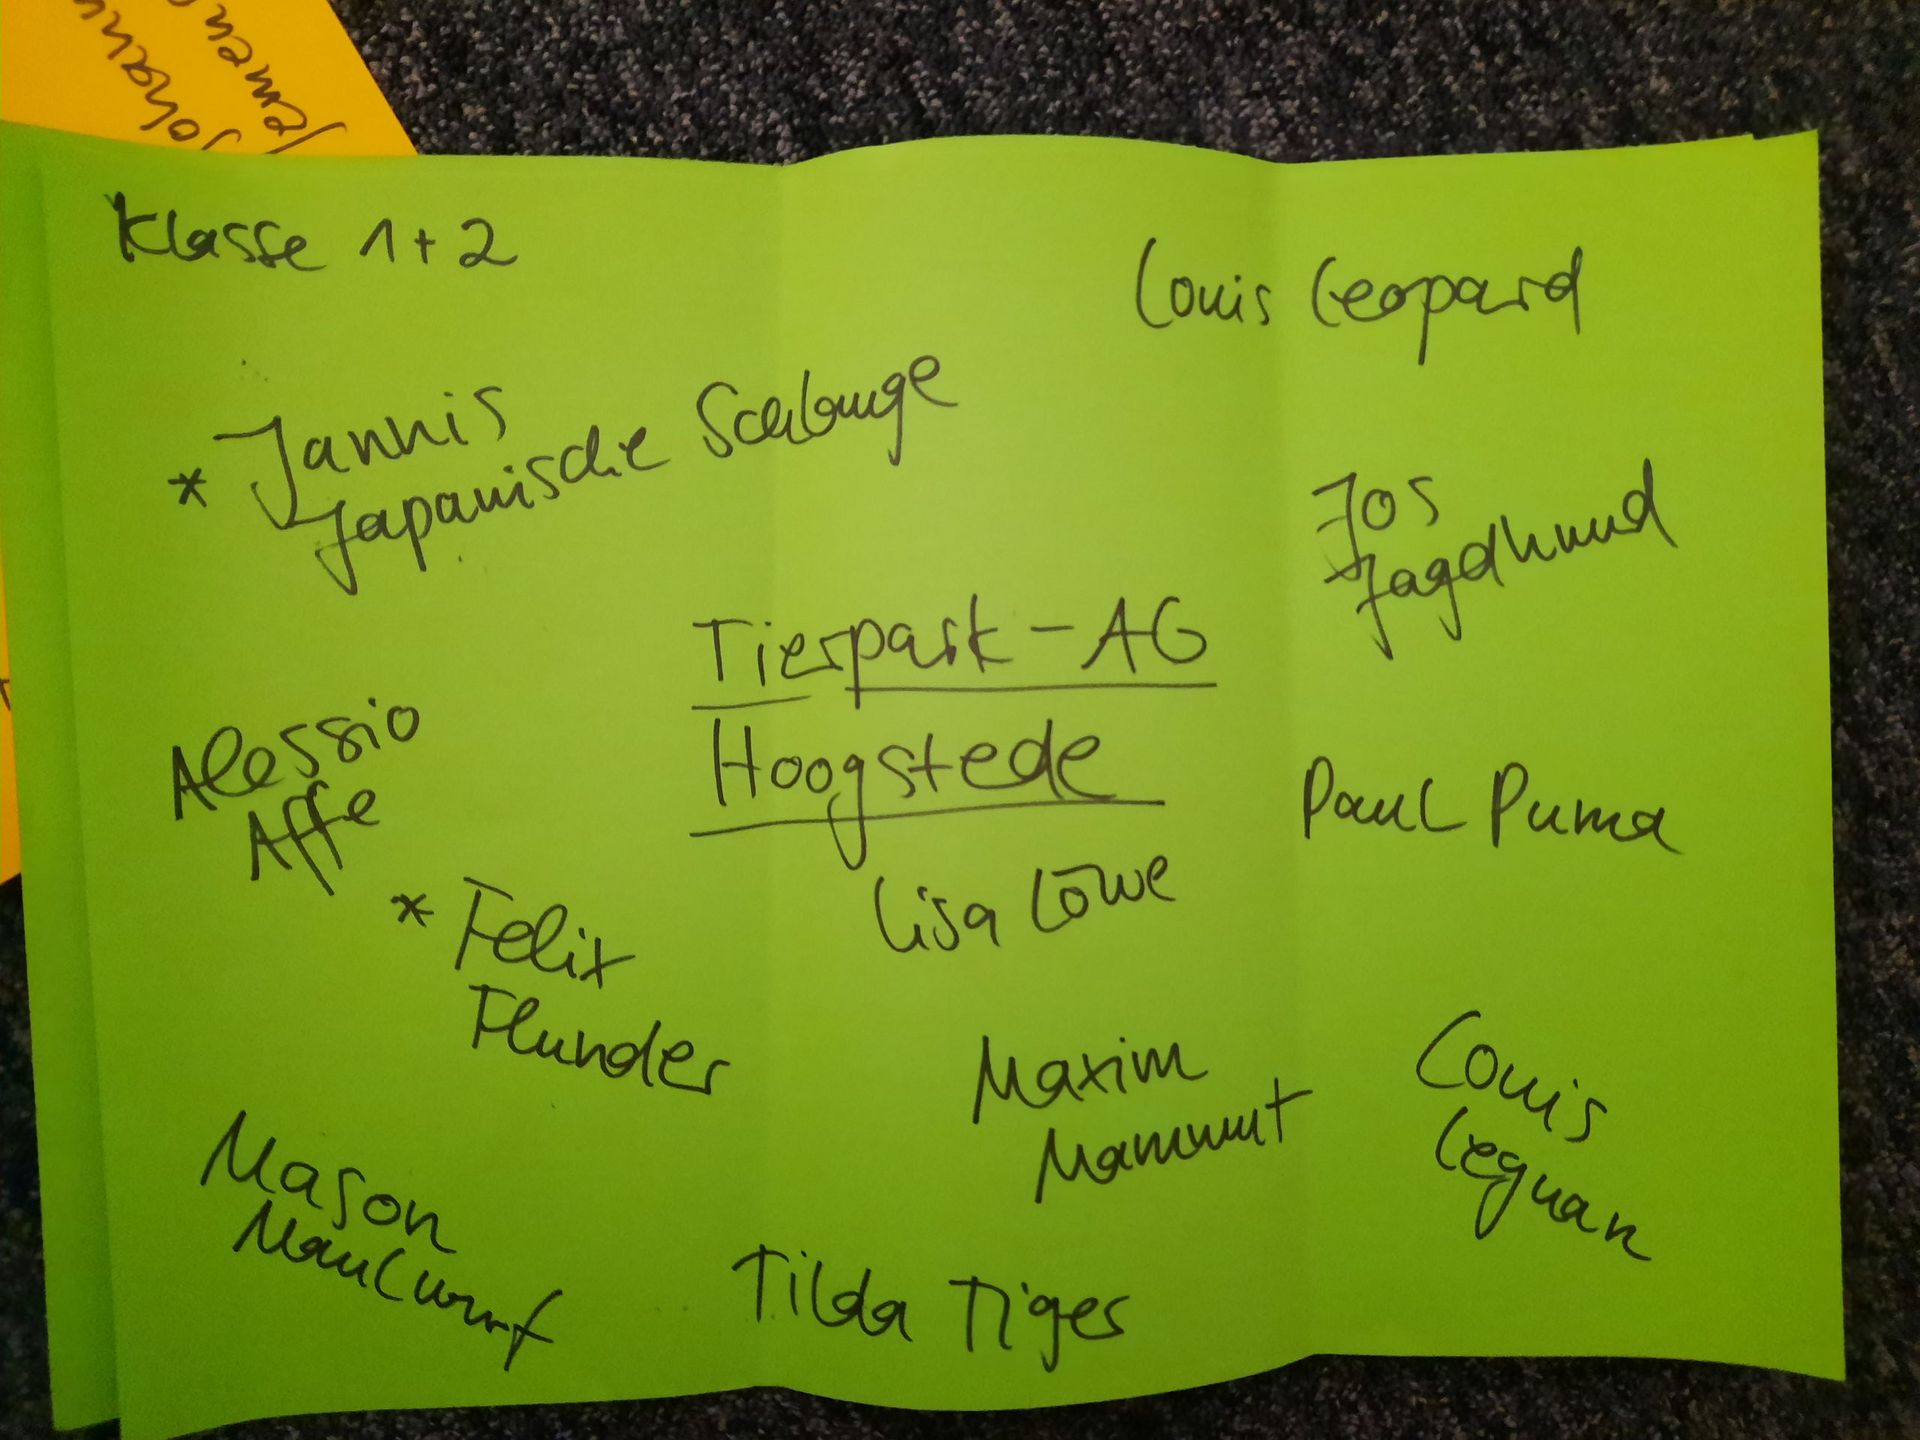 Klasse 1+2
Louis Leopard
* Jannis
Japanische Schlange
Jos
Jagdhund
Tierpark-AG
Hoogstede
Alessio
Affe
Paul Puma
Lisa Löwe
* Felix
Flunder
Maxim
Mammut
Louis
Leguan
Mason
Maulwurf
Tilda Tiger